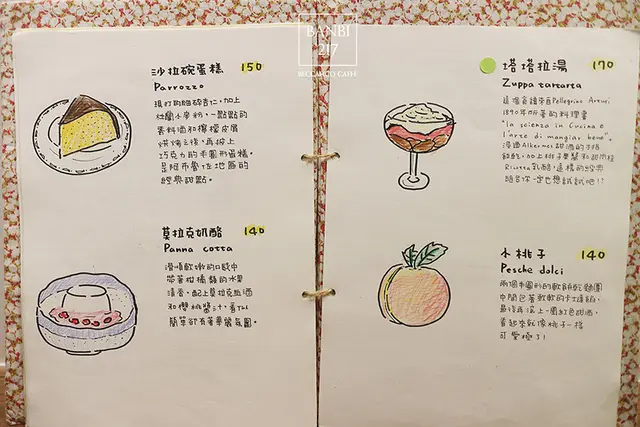 BANBI
217
BECCAFICO CAFFÈ
沙拉碗蛋糕 150
Parrozzo
現打的細碎杏仁,加上
杜蘭小麥粉,一點點的
香料酒和檸檬皮屑
烘烤之後,再披上
巧克力的半圓形蛋糕。
是阿布魯佐地區的
經典甜點。
莫拉克奶酪 140
Panna cotta
滑順軟嫩的口感中
帶著柑橘類的水果
清香,配上莫拉克虹酒
和櫻桃醬汁,看似
簡單卻有著華麗氛圍。
塔塔拉湯 170
Zuppa tartarta
這個食譜來自Pellegrino Artusi
1890年所著的料理書
"la scienza in Cucina e
l'arte di mangiar bene".
浸過Alkermes甜酒的手指
餅乾,加上桃子果醬和甜奶味
Ricotta乳酪,這樣的經典
組合你一定也想試試吧!?
水桃子 140
Pesche dolci
兩個半圓形的軟餅乾麵團
中間包著軟軟的卡士達餡,
最後再染上一層紅色甜酒,
看起來就像桃子一樣
可愛極了!